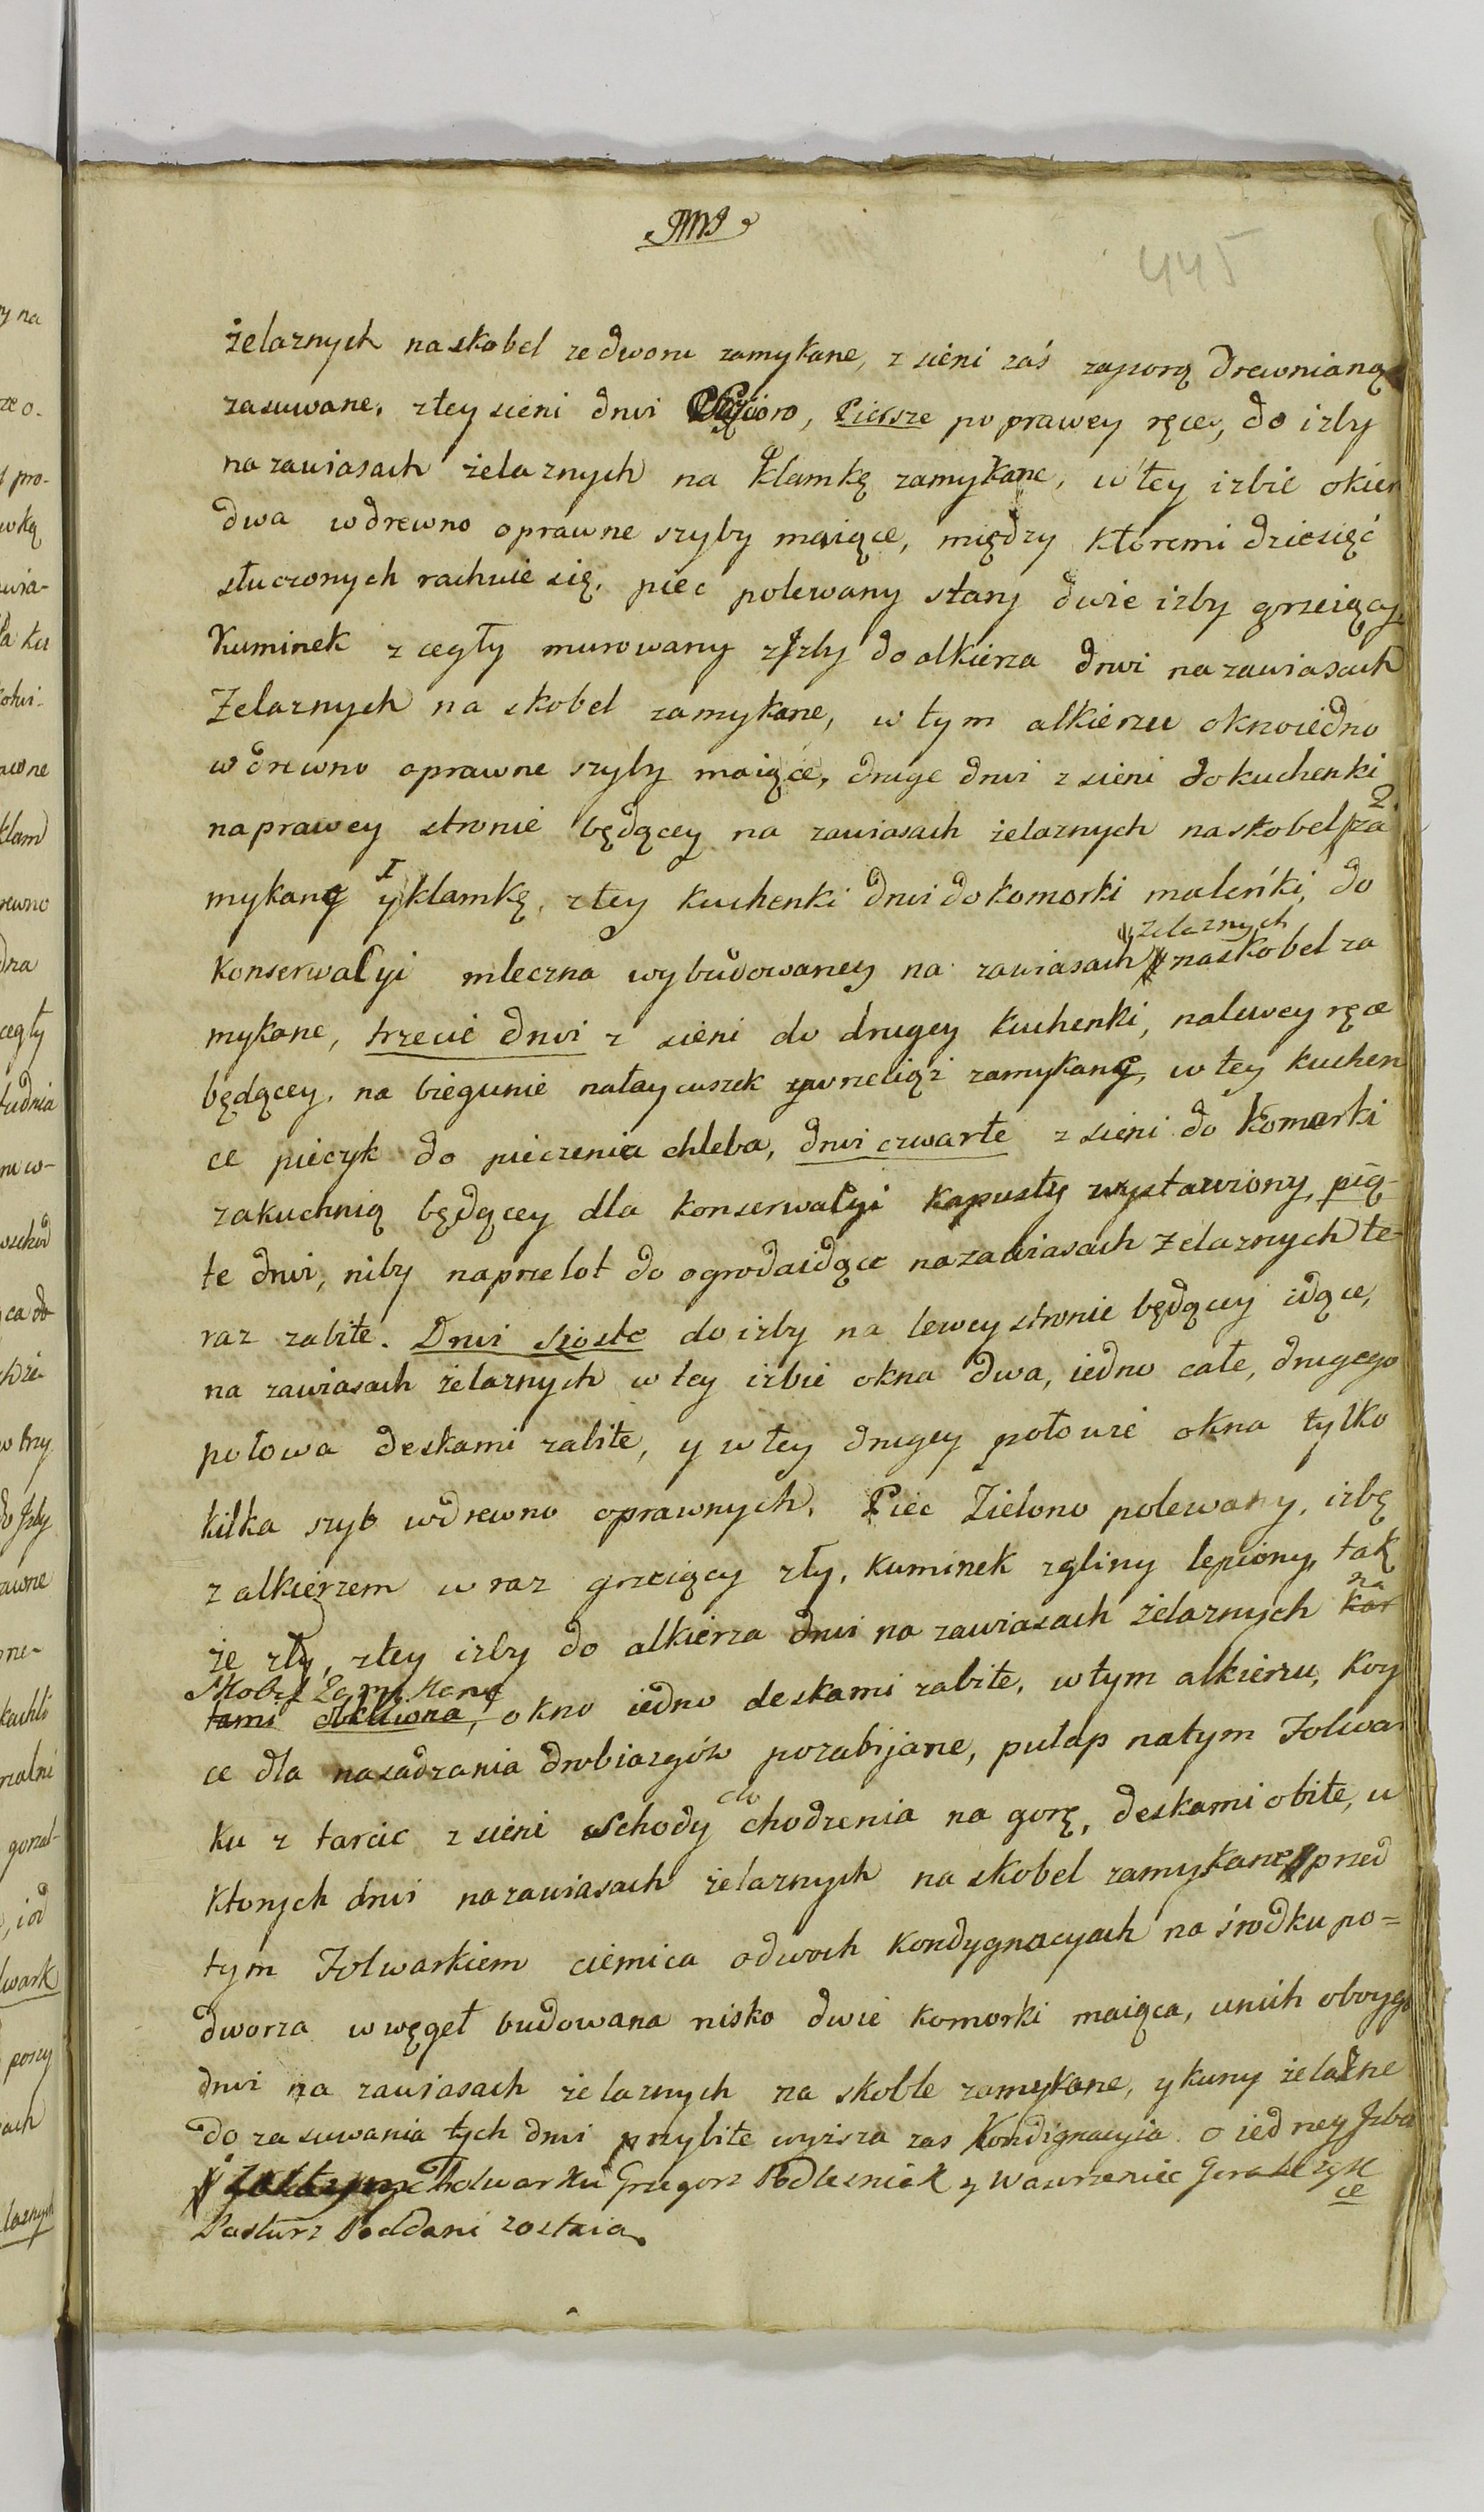 445
żelaznych na skobel ze dworu zamykane, z sieni zaś zaporą drewnianą
zasuwane, z tey sieni drzwi, Piersze po prawey ręce, do izby
na zawiasach żelaznych na klamkę zamykane, w tey izbie okien
dwa w drewno oprawne szyby maiące, między ktoremi dziesięć
stłuczonych rachuie się, piec polewany stary dwie izby grzeiący,
Kuminek z cegły murowany z Izby do alkierza drzwi na zawiasach
Zelaznych na skobel zamykane, w tym alkierzu okno iedno
w drewno oprawne szyby maiące, drugie drzwi z sieni do kuchenki
na prawey stronie będącey na zawiasach żelaznych na skobel za
mykane y klamkę, z tey kuchenki drzwi do komorki maleńki, do
zelaznych
konserwacyi mleczna wybudowaney na zawiasach na skobel za
mykane, trzecie drzwi z sieni do drugey kuchenki, na lewey ręce
będącey, na biegunie na łaycuszek y wrzeciąz zamykane, w tey kuchen
ce piecyk do pieczenia chleba, drzwi czwarte z sieni do Komorki
za kuchnią będącey dla konserwacyi kapusty wystawiony, pią-
te drzwi, niby na przelot do ogroda idące na zawiasach zelaznych te-
raz zabite. Drzwi szoste do izby na lewey stronie będącey idące,
na zawiasach żelaznych w tey izbie okna dwa, iedno całe, drugego
połowa deskami zabite, y w tey drugey połowie okna tylko
kilka szyb w drewno oprawnych, Piec Zielono polewany, izbę
z alkierzem w raz grzeiący zły, kuminek z gliny lepiony, tak
że zły, z tey izby do alkierza drzwi na zawiasach żelaznych na
Skobel Zamykane, okno iedno deskami zabite, w tym alkierzu, koy
ce dla nasadzania drobiazgów pozabijane, pułap na tym Folwar
ku z tarcic z sieni wschody do chodzenia na gorę, deskami obite, u
ktorych drzwi na zawiasach żelaznych na skobel zamykane przed
tym Folwarkiem ciemica o dwoch kondygnacyach na środku po=
dworza w węgeł budowana nisko dwie komorki maiąca, u nich oboyga
drzwi na zawiasach żelaznych na skoble zamykane, y kuny żelazne
do zasuwania tych drzwi przybite wyższa zas Kondignacyia o iedney Izbie
Folwarku Grzegorz Podlesniak y Wawrzeniec
Pasturz Poddani zostaią